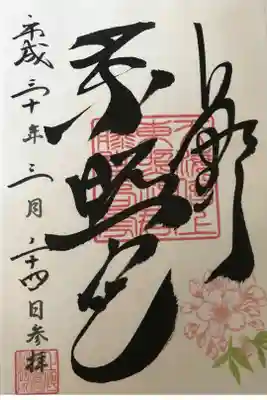 上野
東照宮
平成三十年三月二十四日参拝